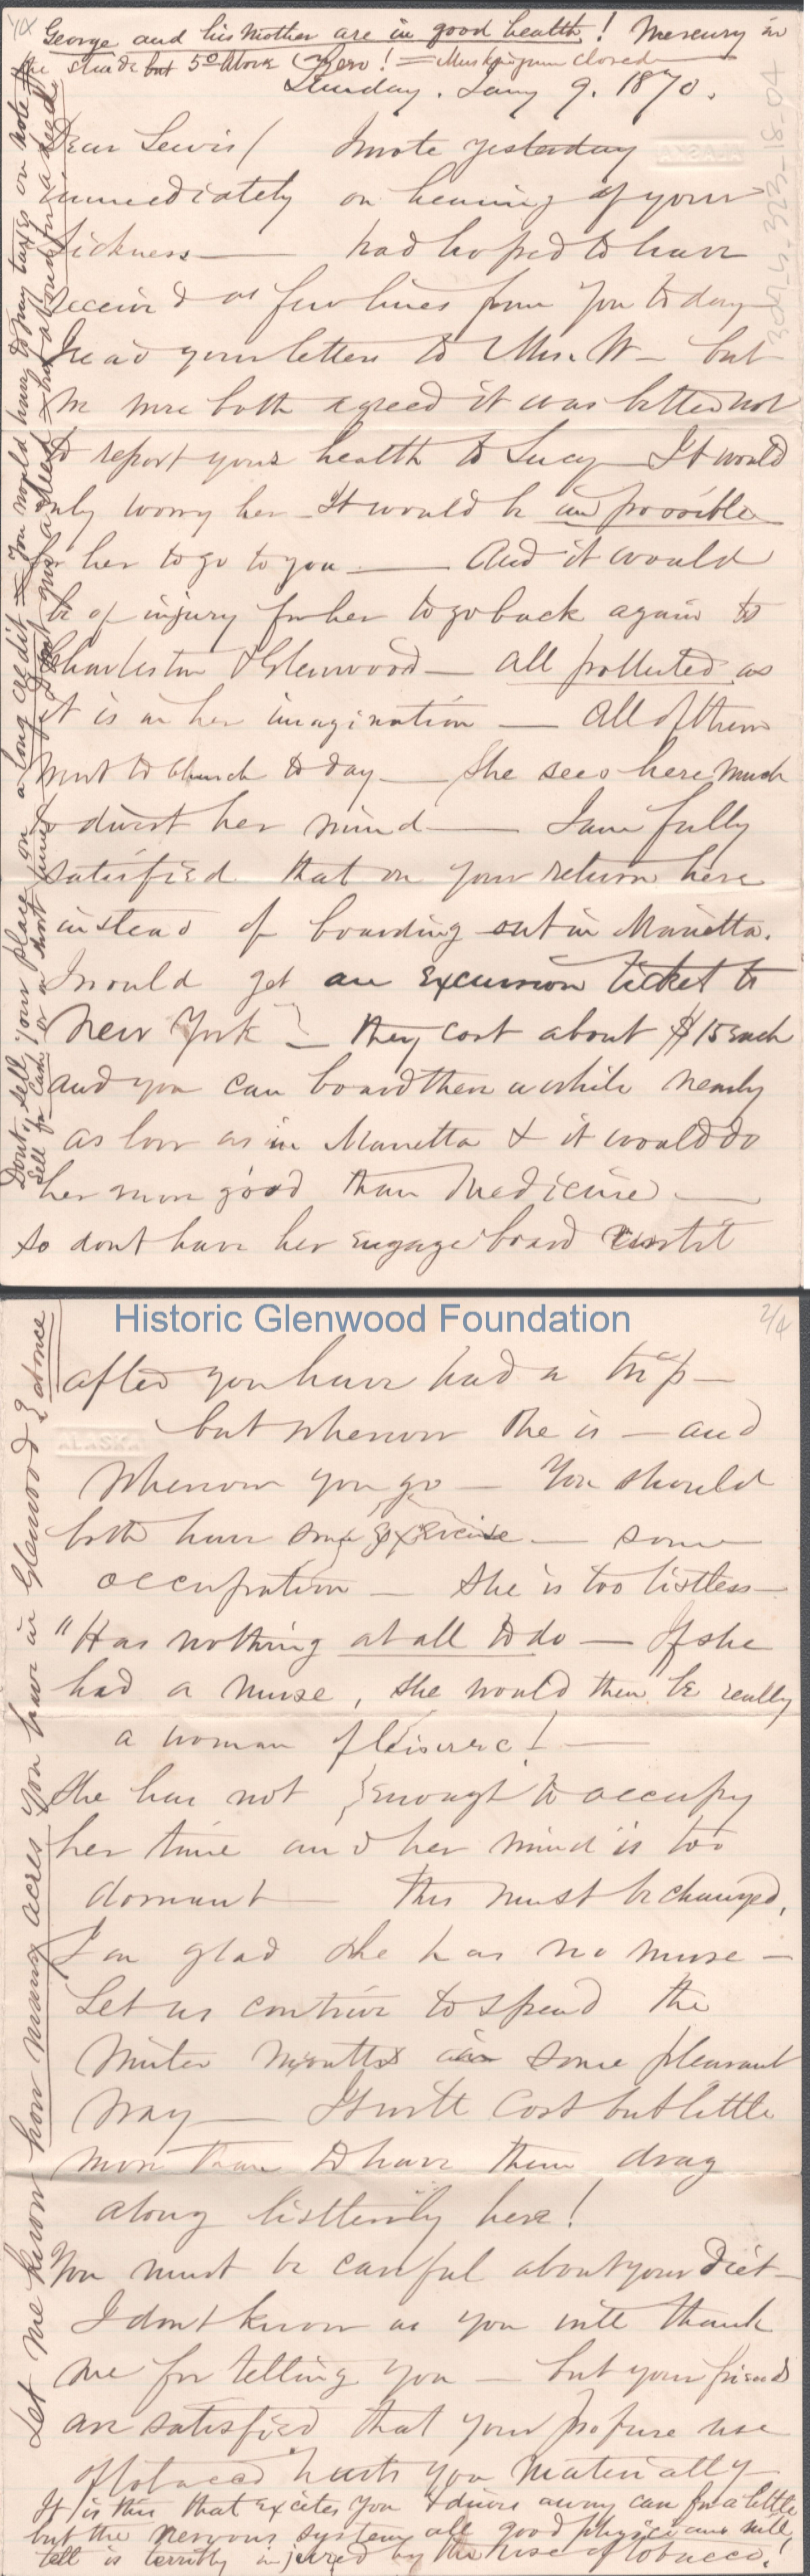 1/4
George and his Mother are in good health! Mercury in
the shade but 5º above Zero! = Muskingum closed
Sunday. Jany 9. 1870.
Dear Lewis/ I wrote yesterday
immediately on hearing of your
sickness — had hoped to have
receivd a few lines from you to day
I read your letter to Mrs. W — but
we were both agreed it was better not
to report your health to Lucy — It would
only worry her — It would be impossible
for her to go to you — And it would
be of injury for her to go back again to
Charleston & Glenwood — all polluted as
it is in her imagination — All of them
went to Church to day — She sees here much
to divert her mind — I am fully
satisfied that on your return here
instead of boarding out in Marietta.
I would get an Excursion ticket to
New York — they cost about $15 each
and you can board there awhile nearly
as low as in Marietta & it would do
her more good than Medicine —
so dont have her engage board until
Dont, sell your place on a long credit = You would have to pay taxes on note
sell for Cash or on short time
304-4-323-18-04
Historic Glenwood Foundation
2/4
after you have had a trip —
but wherever she is — and
wherever you go — You should
both have some exercise — some
occupation — She is too listless —
"Has nothing at all to do — If she
had a nurse, she would then be really
a woman of leisure! —
She has not enough to occupy
her time and her mind is too
dormant — This must be changed,
I am glad she has no nurse —
Let us contrive to spend the
Winter Months in some pleasant
way — It will cost but little
more than to have them drag
along listlessly here!
You must be careful about your Diet —
I dont know as you will thank
me for telling you — but your friends
are satisfied that your profuse use
of tobacco hurts you Materially
It is this that excites you & drives away care for a little
but the nervous system all good physicians will
tell is terribly injured by the use of tobacco!
Let me know how many acres you have in Glenwood & at once